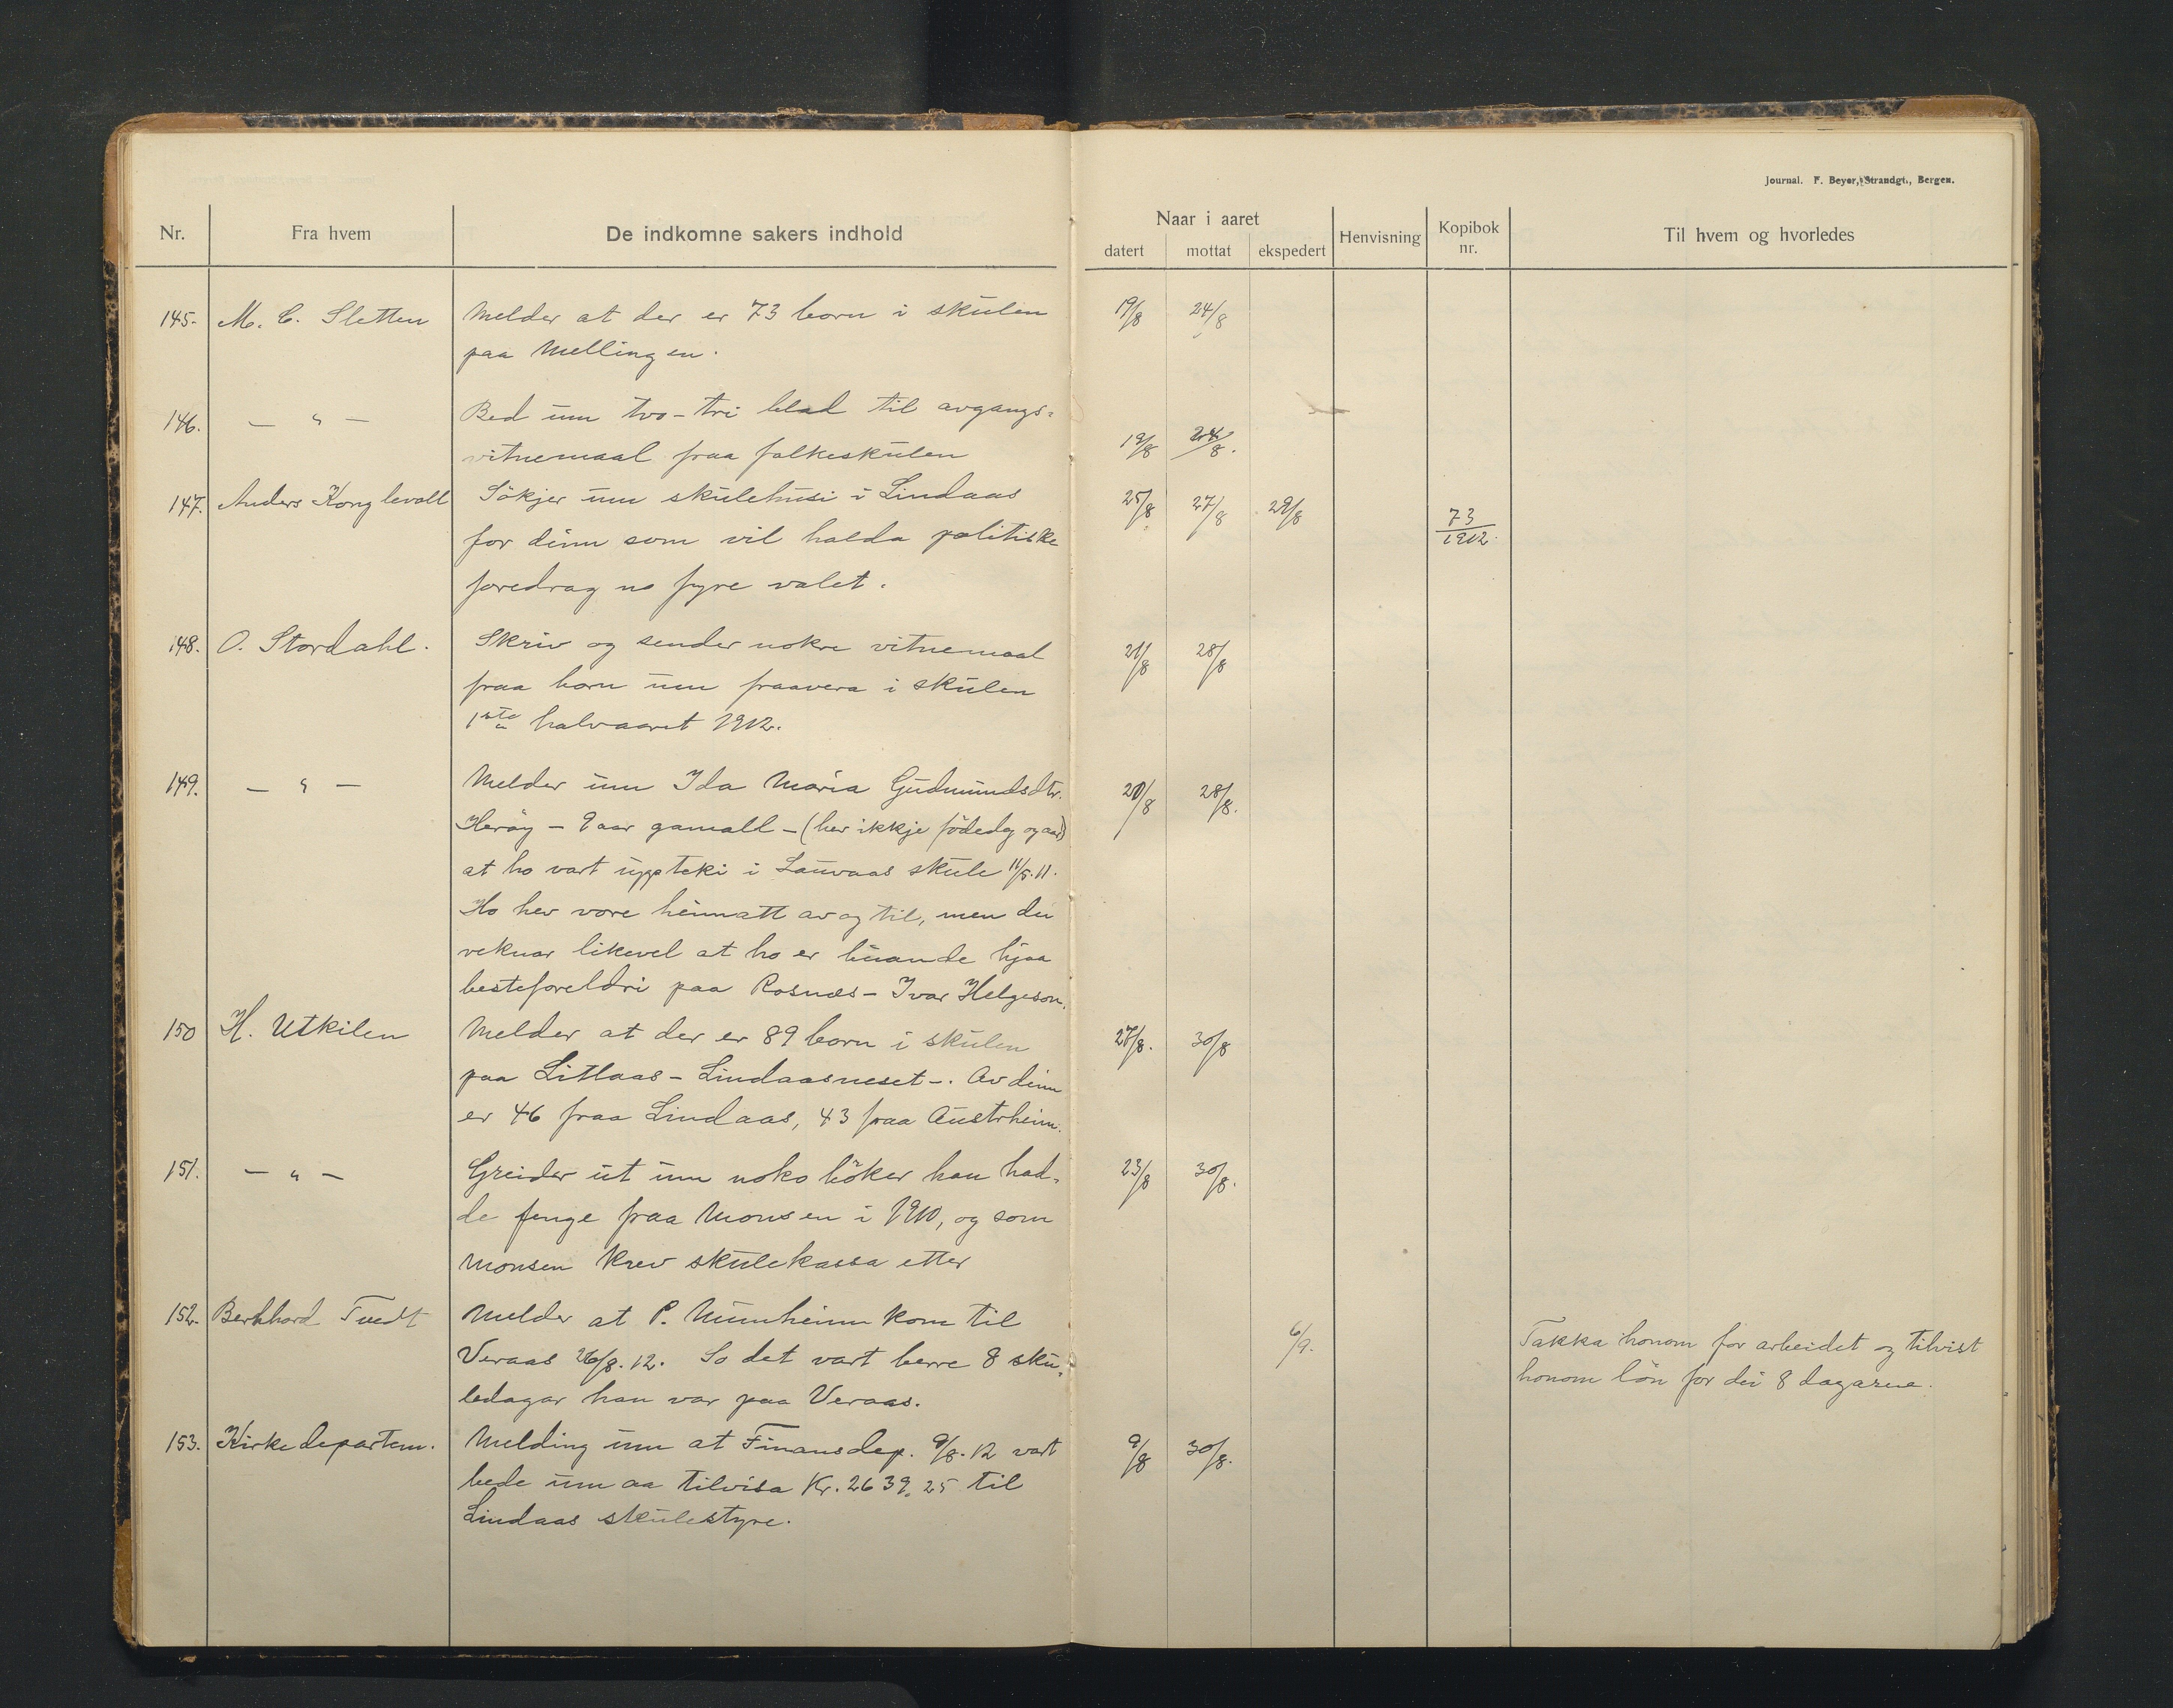 Journal. F. Beyer, Strandgt., Bergen.
Nr. Fra hvem De indkomne sakers indhold Naar i aaret datert mottat ekspedert Henvisning Kopibok nr. Til hvem og hvorledes
145. M. C. Sletten Melder at der er 73 born i skulen 19/8 24/8
paa Mellingen.
146. — " — Bed um tvo-tri blad til avgangs=
vitnemaal fraa folkeskulen 19/8 24/8.
147. Anders Konglevoll Sökjer um skulehusi i Lindaas 25/8 27/8 29/8 73/1912.
for deim som vil halda politiske
foredrag no fyre valet.
148. O. Stordahl. Skriv og sender nokre vitnemaal 21/8 28/8
fraa born um fraavera i skulen
1ste halvaaret 1912.
149. — " — Melder um Ida Maria Gudmundsdtr. 20/8 28/8.
Heröy — 9 aar gamall — (her ikkje födedag og aar)
at ho vart uppteki i Lauvaas skule 11/5.11.
Ho hev vore heimatt av og til, men dei
reknar likevel at ho er buande hjaa
besteforeldri paa Rosnæs — Ivar Helgeson.
150 H. Utkilen Melder at der er 89 born i skulen 27/8. 30/8
paa Litlaas — Lindaasneset —. Av deim
er 46 fraa Lindaas, 43 fraa Austrheim.
151. — " — Greider ut um noko böker han had= 23/8 30/8.
de fenge fraa Monsen i 1910, og som
Monsen krev skulekassa etter
152. Bernhard Tvedt Melder at P. Mumheim kom til 6/9. Takka honom for arbeidet og tilvist
Veraas 26/8.12. So det vart berre 8 sku= honom lön for dei 8 dagarne.
ledagar han var paa Veraas.
153. Kirkedepartem. Melding um at Finansdep. 9/8.12 vart 9/8 30/8.
bede um aa tilvisa Kr. 2639,25 til
Lindaas skulestyre.